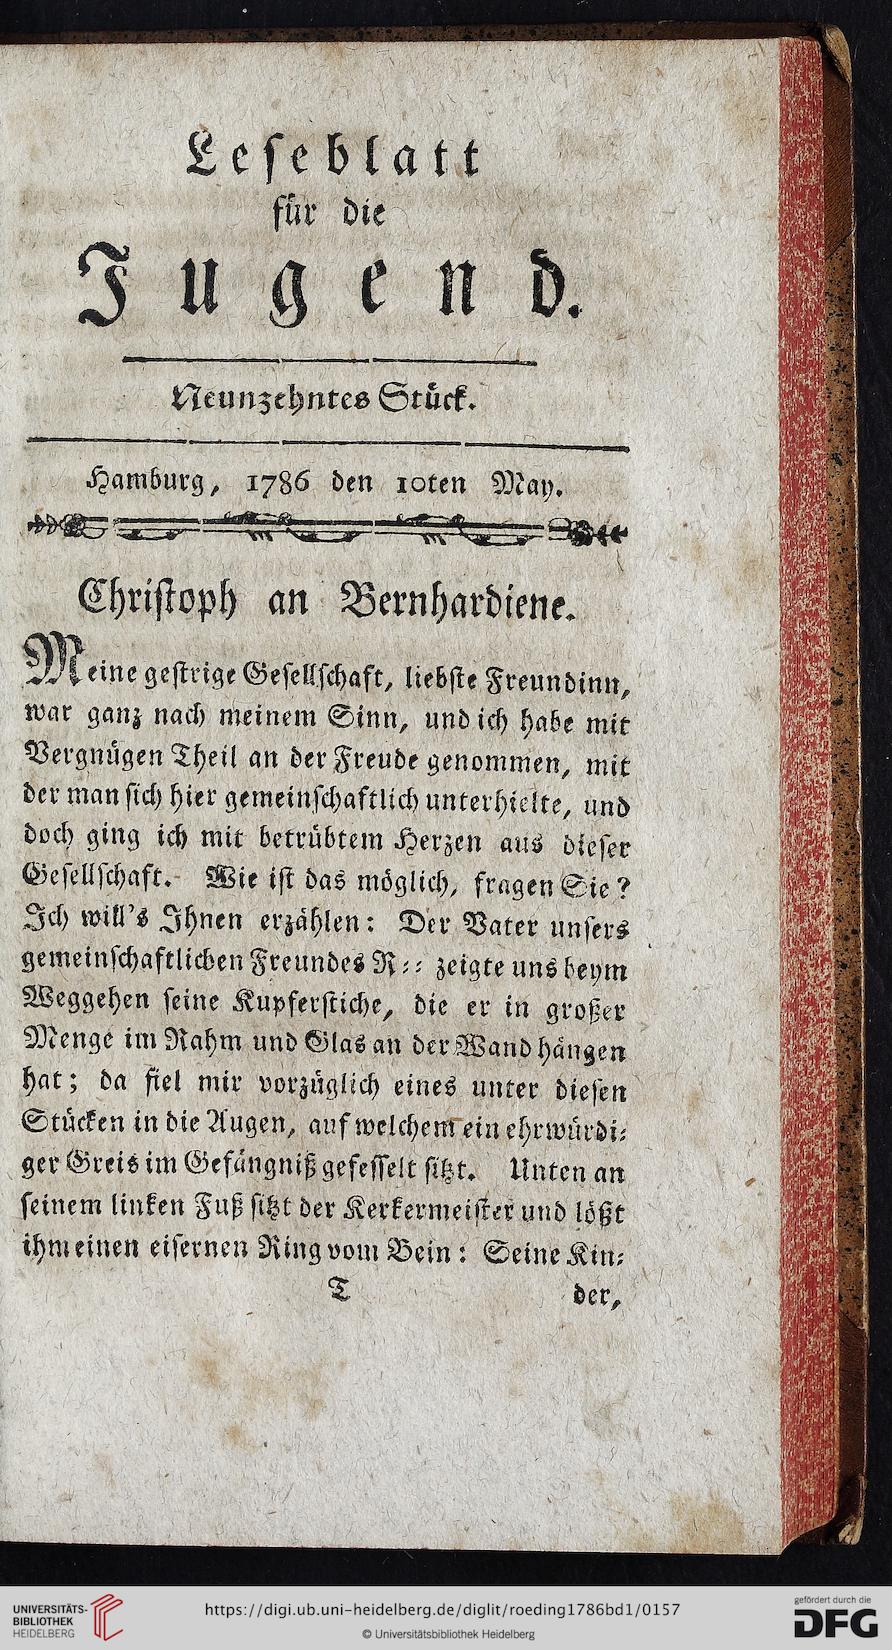 Leseblatt
für die
Jugend.
Neunzehntes Stück.
Hamburg, 1786 den 10ten May.
Christoph an Bernhardiene.
Meine gestrige Gesellschaft, liebste Freundinn,
war ganz nach meinem Sinn, und ich habe mit
Vergnügen Theil an der Freude genommen, mit
der man sich hier gemeinschaftlich unterhielte, und
doch ging ich mit betrübtem Herzen aus dieser
Gesellschaft. Wie ist das möglich, fragen Sie?
Ich will's Ihnen erzählen: Der Vater unsers
gemeinschaftlichen Freundes R⸗⸗ zeigte uns beym
Weggehen seine Kupferstiche, die er in großer
Menge im Rahm und Glas an der Wand hängen
hat; da fiel mir vorzüglich eines unter diesen
Stücken in die Augen, auf welchem ein ehrwürdi⸗
ger Greis im Gefängniß gefesselt sitzt. Unten an
seinem linken Fuß sitzt der Kerkermeister und lößt
ihm einen eisernen Ring vom Bein: Seine Kin⸗
T der,
UNIVERSITÄTS-
BIBLIOTHEK
HEIDELBERG
https://digi.ub.uni-heidelberg.de/diglit/roeding1786bd1/0157
© Universitätsbibliothek Heidelberg
gefördert durch die
DFG